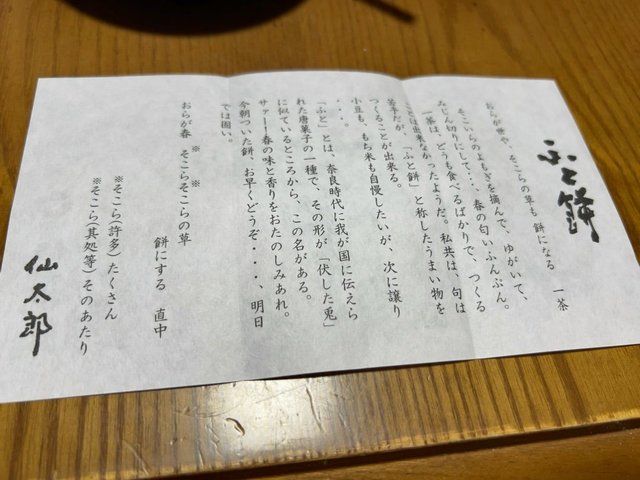 ふと餅
おらが世や、そこらの草も 餅になる 一茶
そこいらのよもぎを摘んで、ゆがいて、
みじん切りにして・・・春の匂いふんぷん。
一茶は、どうも食べるばかりで、つくる
ことは出来なかったようだ。私共は、句は
苦手だが、「ふと餅」と称したうまい物を
つくることが出来る。
小豆も、もち米も自慢したいが、次に譲り
・・・。
「ふと」とは、奈良時代に我が国に伝えら
れた唐菓子の一種で、その形が「伏した兎」
に似ているところから、この名がある。
サァー春の味と香りをおたのしみあれ。
今朝ついた餅、お早くどうぞ・・・、明日
では固い。
おらが春 そこら※そこら※の草
餅にする 直中
※そこら(許多)たくさん
※そこら(其処等)そのあたり
仙太郎